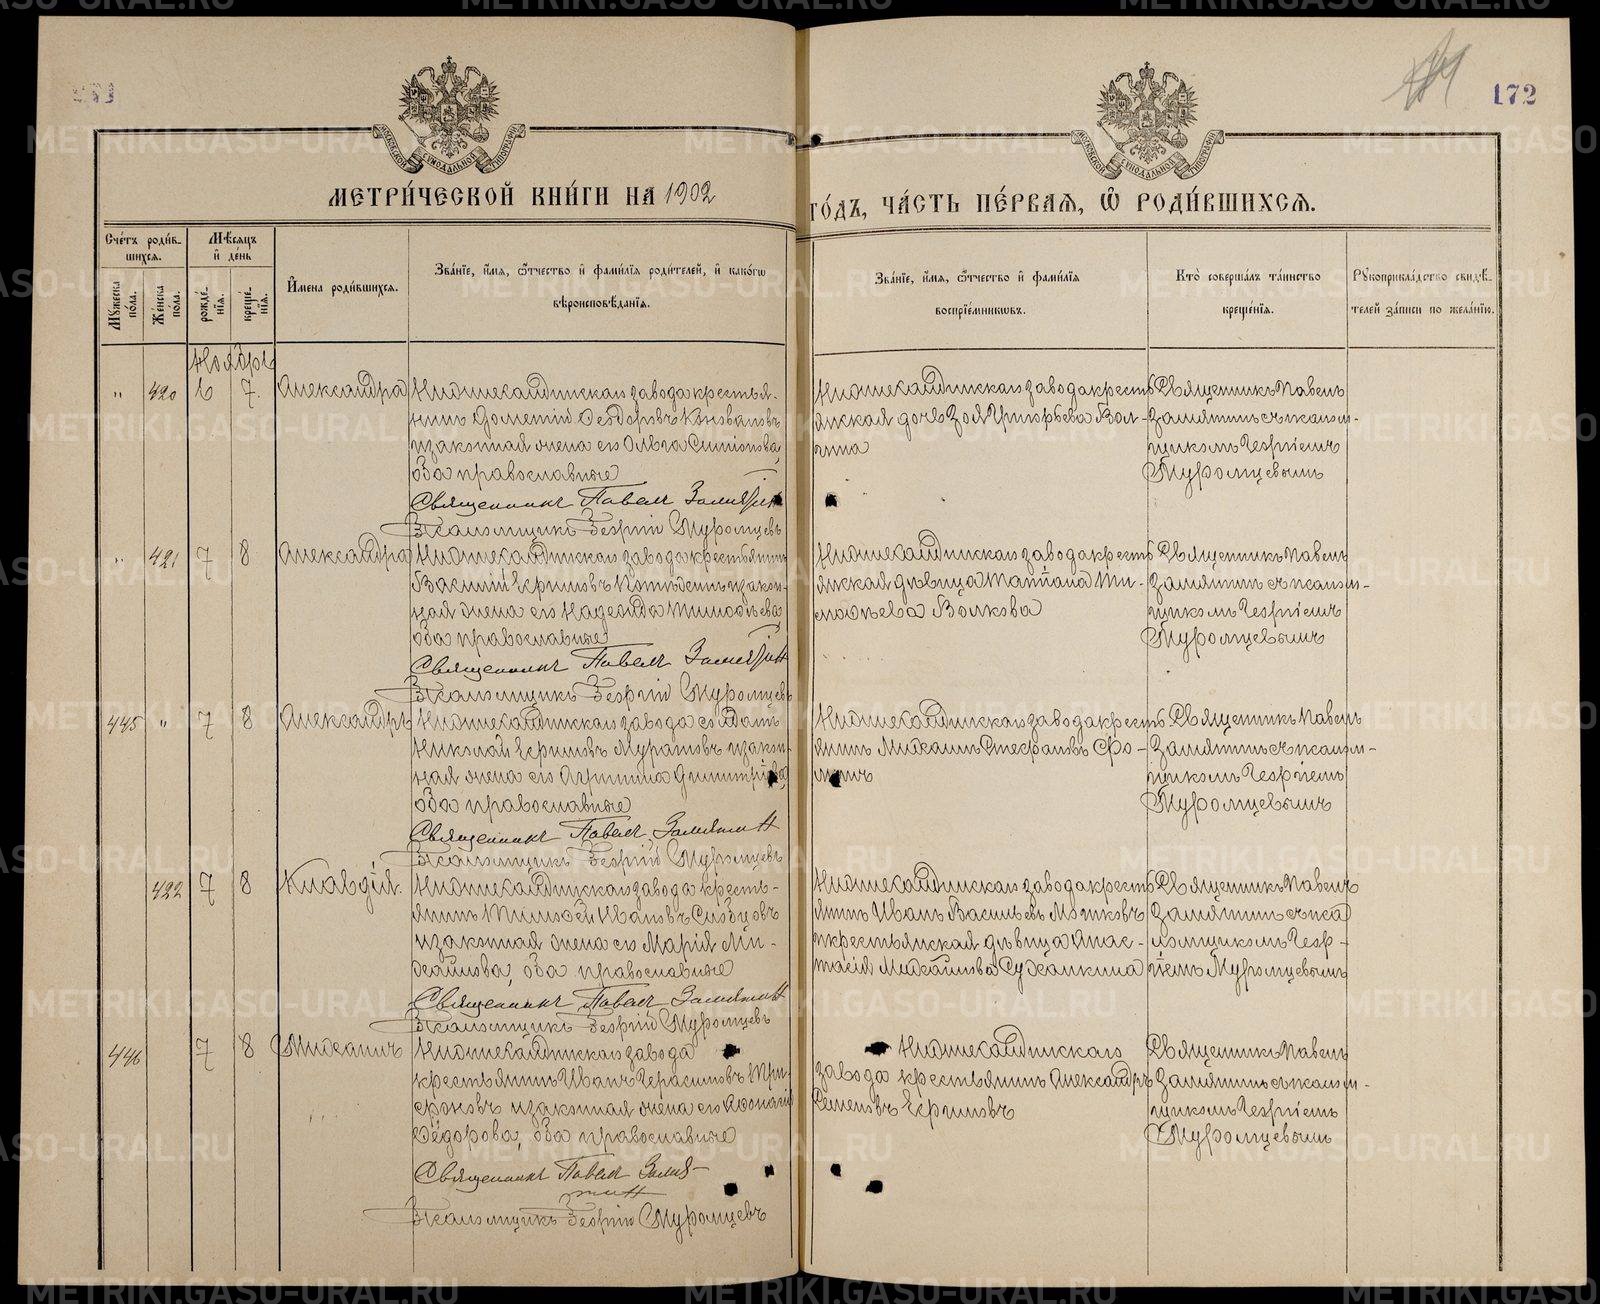 172
МОСКОВСКОЙ СѴНОДАЛЬНОЙ ТИПОГРАФІИ
МОСКОВСКОЙ СѴНОДАЛЬНОЙ ТИПОГРАФІИ
МЕТРИ́ЧЕСКОЙ КНИ́ГИ НА 1902
ГО́ДЪ, ЧА́СТЬ ПЕ́РВАѦ, Ѡ҆ РОДИ́ВШИХСѦ.
Сче́тъ роди́в-
шихся.
Мѣ́сяцъ
и҆ де́нь
Му́жеска
по́ла.
Же́нска
по́ла.
рожде́-
нїѧ.
креще́-
нїѧ.
И҆мена роди́вшихся.
Зва́нїе, и҆́мѧ, ѻ҆́тчество и҆ фами́лїѧ роди́телей, и҆ како́гѡ
вѣроисповѣ́данїѧ.
Зва́нїе, и҆́мѧ, ѻ҆́тчество и҆ фами́лїѧ
воспрїе́мникѡвъ.
Кто̀ соверша́лъ та́инство
креще́нїѧ.
Рꙋкоприкла́дство свидѣ́-
телей за́писи по жела́нїю.
Ноябрь
" 420 6 7. Александра
Нижнесалдинскаго завода крестья-
нинъ Дометій Ѳеодоровъ Коноваловъ
и законная жена его Ольга Симіонова,
оба православные
Священникъ Павелъ Замятин
Псаломщикъ Георгій Муромцевъ
Нижнесалдинскаго завода кресть-
янская дочь Зоя Григорьева Вол-
гина
Священникъ Павелъ
Замятинъ съ псалом-
щикомъ Георгіемъ
Муромцевымъ
" 421 7 8 Александра
Нижнесалдинскаго завода крестьянинъ
Василій Ефимовъ и закон-
ная жена его Надежда Тимоѳеева
оба православные
Священникъ Павелъ Замятин
Псаломщикъ Георгій Муромцевъ
Нижнесалдинскаго завода кресть-
янская дѣвица Татіана Ти-
моѳеева Волкова
Священникъ Павелъ
Замятинъ съ псалом-
щикомъ Георгіемъ
Муромцевымъ
445 " 7 8 Александръ
Нижнесалдинскаго завода солдатъ
Николай Ефимовъ Муратовъ и закон-
ная жена его Агрипина Димитріева,
оба православные
Священникъ Павелъ Замятин
Псаломщикъ Георгій Муромцевъ
Нижнесалдинскаго завода кресть-
янинъ Михаилъ Стефановъ Фо-
минъ
Священникъ Павелъ
Замятинъ съ псалом-
щикомъ Георгіемъ
Муромцевымъ
422 7 8 Клавдія.
Нижнесалдинскаго завода кресть-
янинъ Тимоѳей Ивановъ
и законная жена его Марія Ми-
хаилова, оба православные
Священникъ Павелъ Замятин
Псаломщикъ Георгій Муромцевъ
Нижнесалдинскаго завода кресть-
янинъ Иванъ Васильевъ
и крестьянская дѣвица Анас-
тасія Михаилова Суханкина
Священникъ Павелъ
Замятинъ съ пса-
ломщикомъ Геор-
гіемъ Муромцевымъ
446 7 8 Михаилъ
Нижнесалдинскаго завода
крестьянинъ Иванъ Герасимовъ Три-
фоновъ и законная жена его
Ѳедорова, оба православные
Священникъ Павелъ Замя-
тин
Псаломщикъ Георгій Муромцевъ
Нижнесалдинскаго
завода крестьянинъ Александръ
Семеновъ Ефимовъ
Священникъ Павелъ
Замятинъ съ псалом-
щикомъ Георгіемъ
Муромцевымъ
METRIKI.GASO-URAL.RU